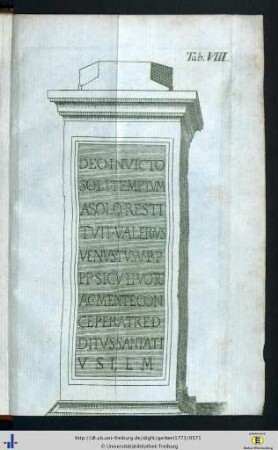 Tab. VIII.
DEO·INVICTO
SOLI·TEMPLVM
A·SOLO·RESTI
TVIT·VALERIVS
VENVSTVS·V·P·P
PP·SICVLI·VOTO
AC·MENTE·CON
CEPERAT·RED
DITVS·SANITATI
V S L L M
http://dl.ub.uni-freiburg.de/diglit/gerbert1773/0371
© Universitätsbibliothek Freiburg